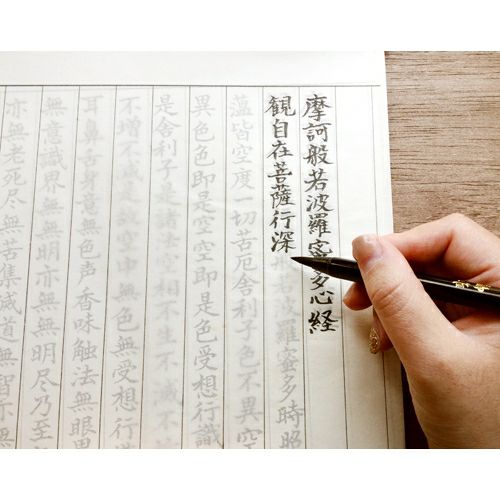 摩訶般若波羅蜜多心経
観自在菩薩行深般若波羅蜜多時照
蘊皆空度一切苦厄舎利子色不異空
異色色即是空空即是色受想行識
是舎利子是諸法空相不生不滅不
不増不減是故空中無色無受想行
耳鼻舌身意無色声香味触法無眼界
無意識界無無明亦無無明尽乃至
亦無老死尽無苦集滅道無智亦無